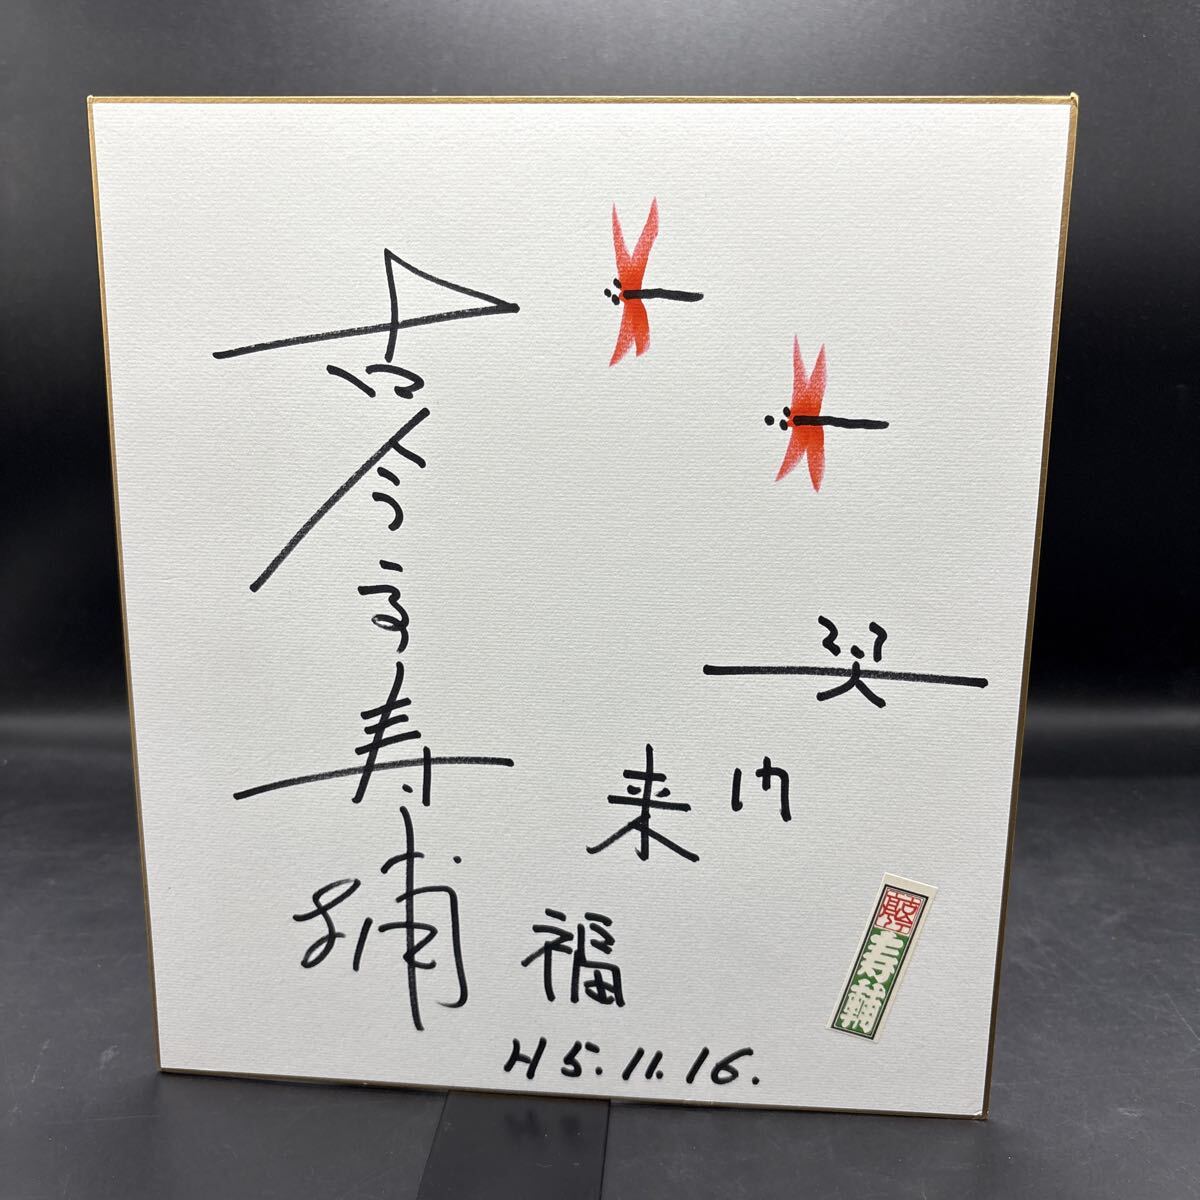 笑門来福
古今亭寿輔
H5.11.16.
寿輔